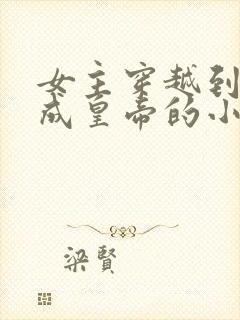 女主穿越到
成皇帝的小
梁賢